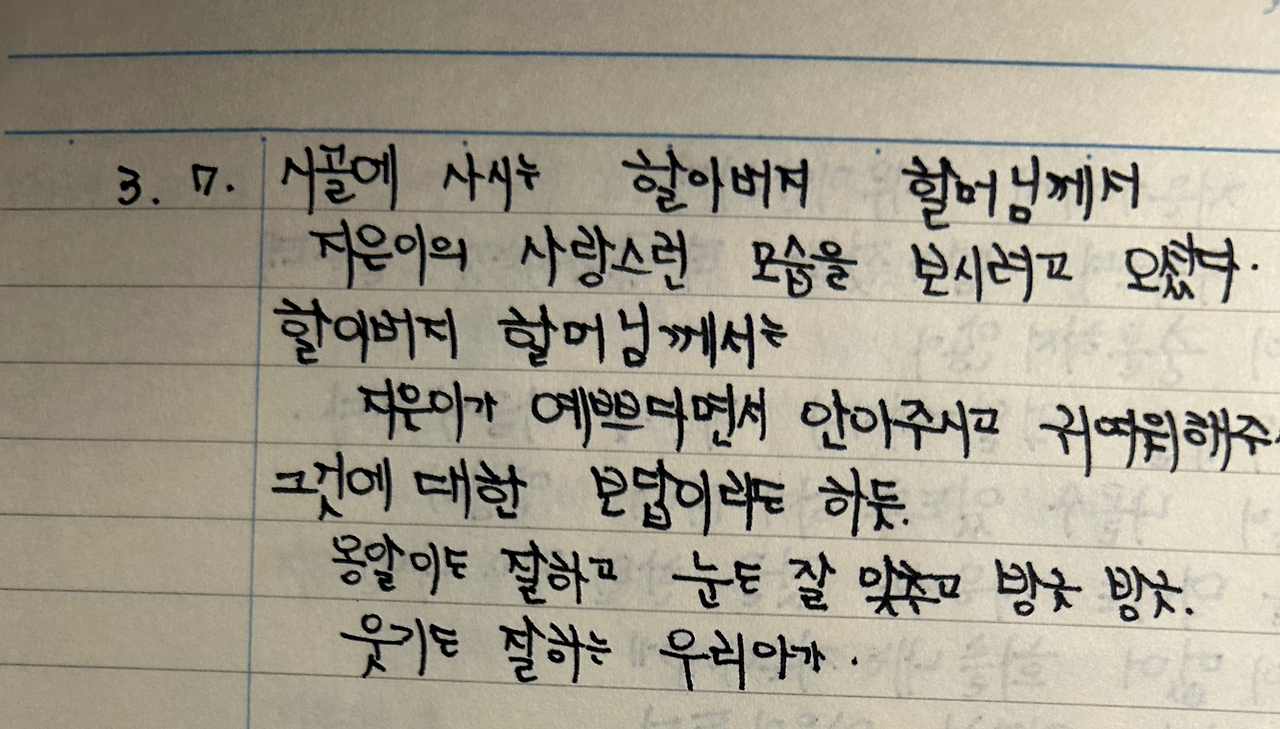 3. 7. 시골에 사시는 할아버지 할머님께서
지은이의 사랑스런 모습을 보시려고 오셨다.
할아버지 할머님께서는
지은이가 예쁘다면서 안아주시고 귀여워해주
그것에 대한 보답이라도 하듯.
옹알이도 잘하고 눈도 잘 맞추고 방긋 방긋.
웃기도 잘하는 우리아가.